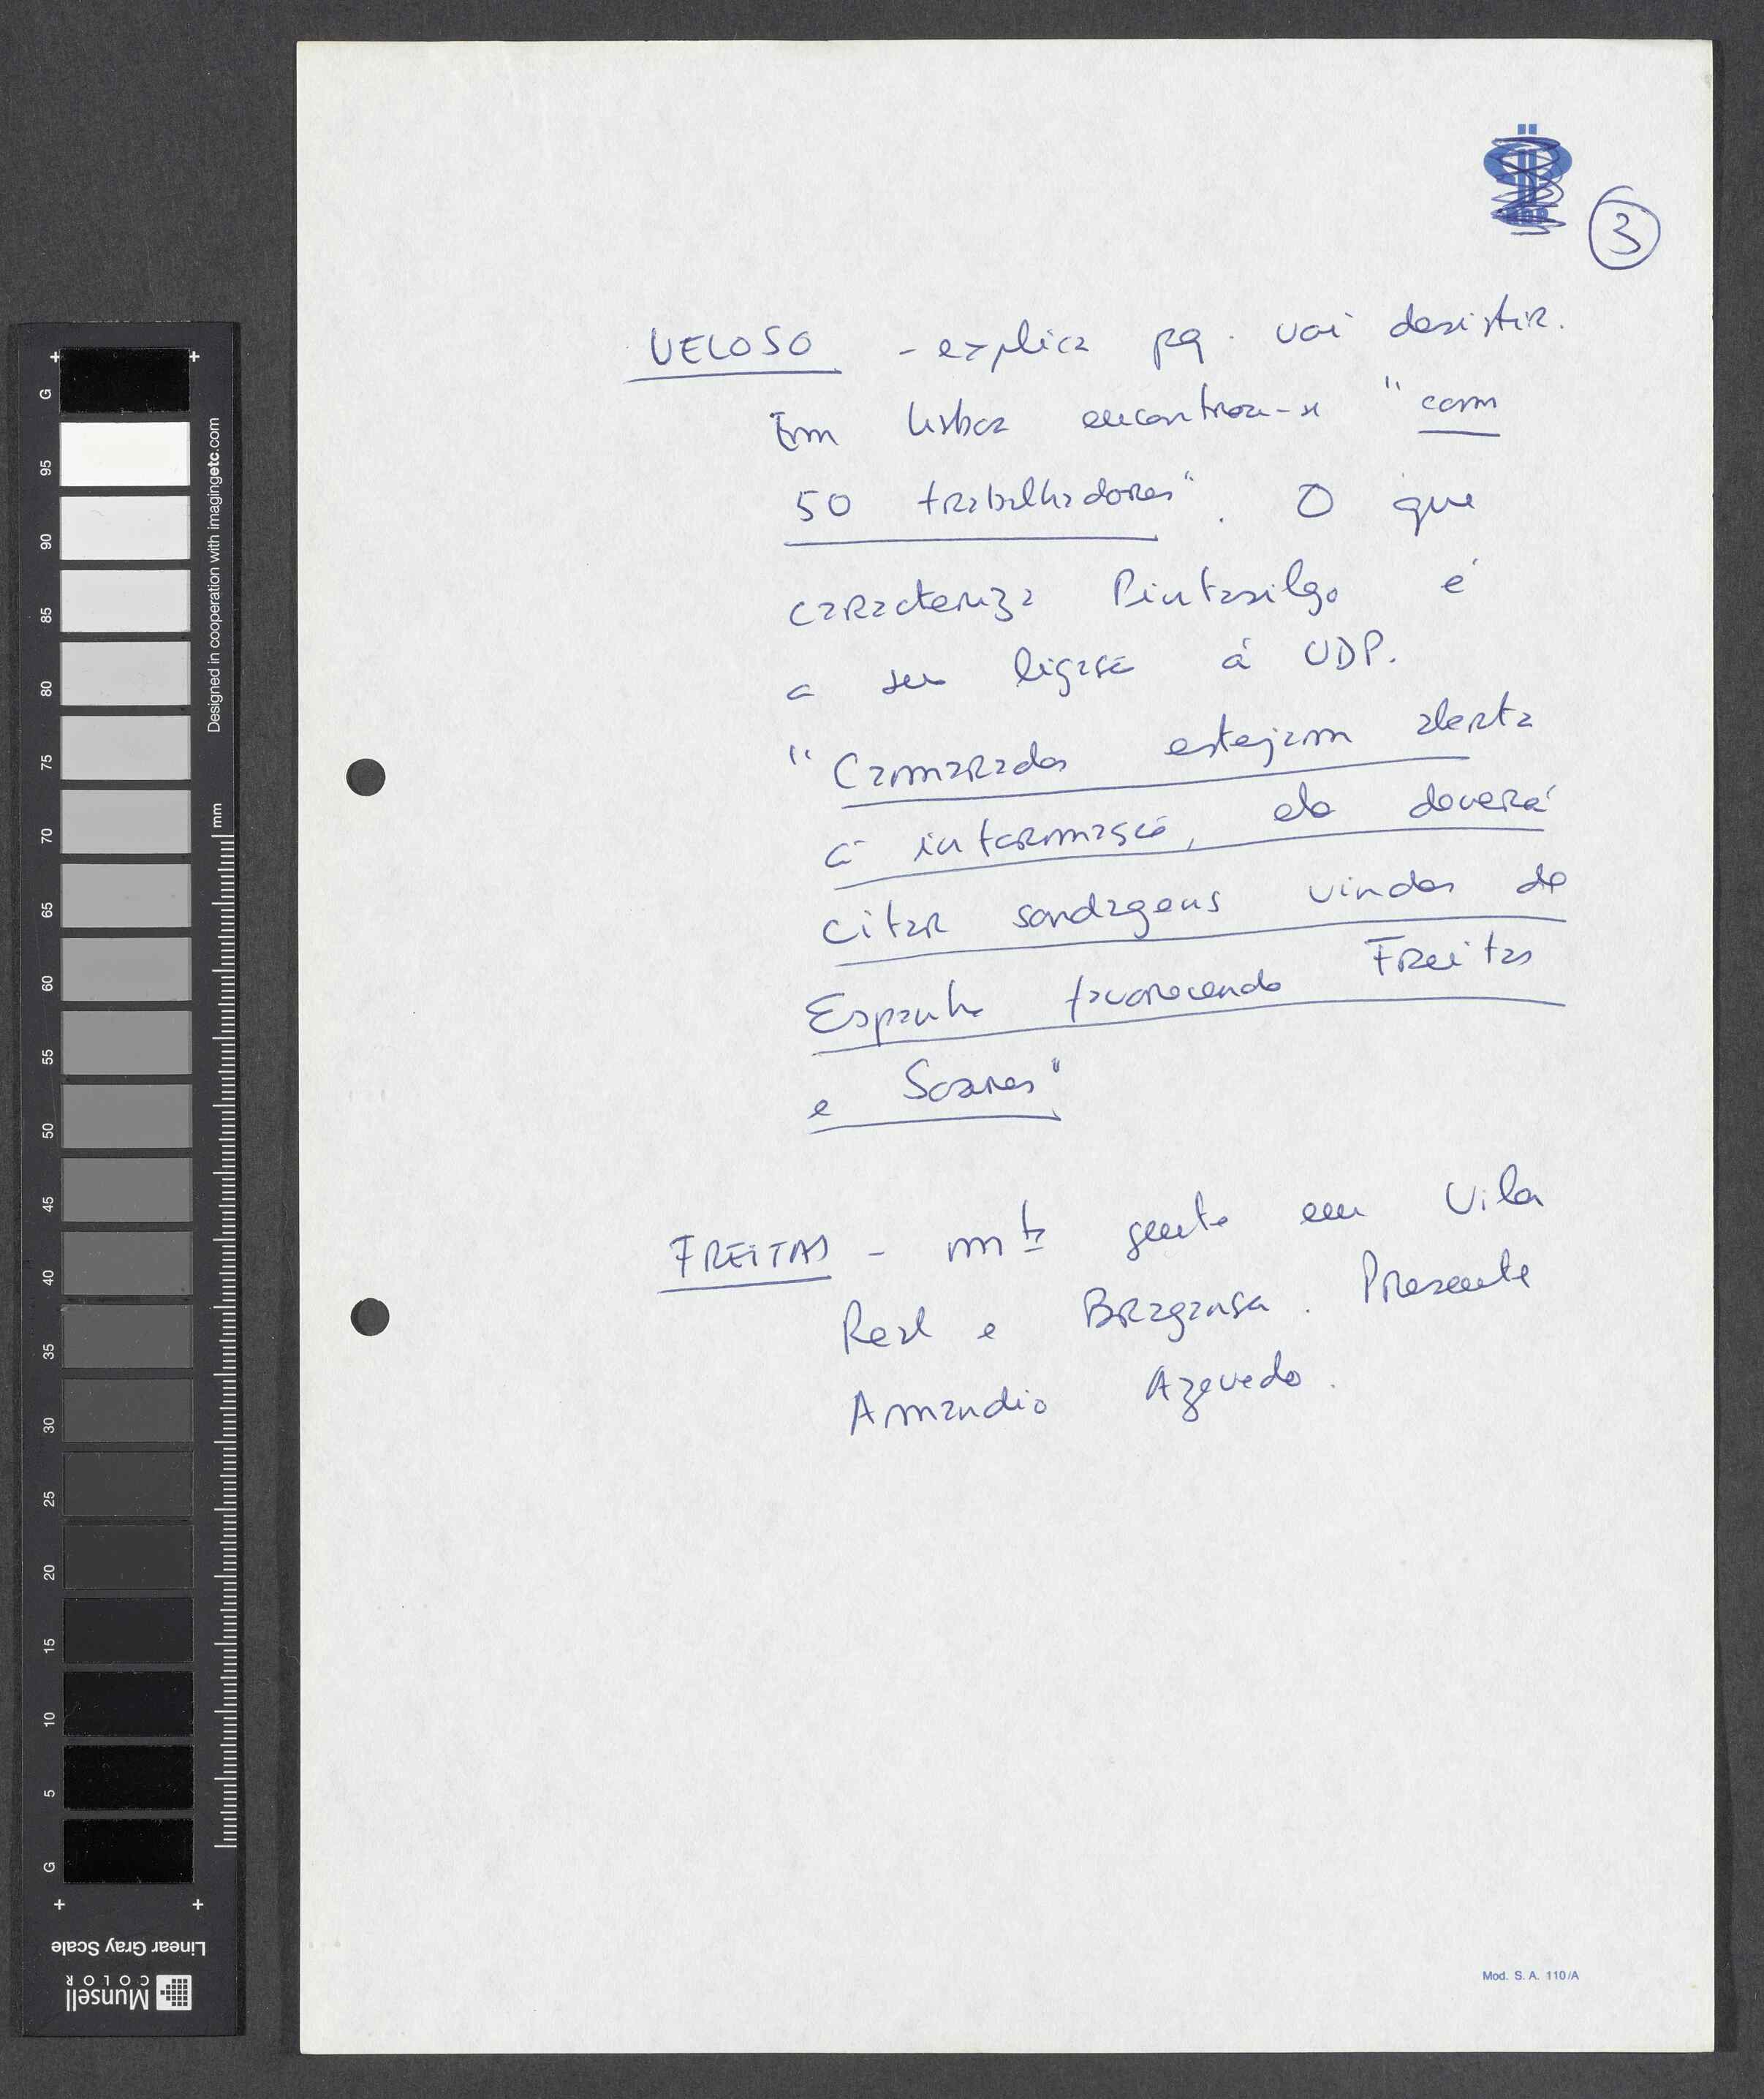 3
VELOSO - explica pq. vai desistir.
Em Lisboa encontrou-se "com
50 trabalhadores". O que
caracteriza Pintasilgo é
a sua ligação á UDP.
"Camaradas estejam alerta
á informação, ela deverá
citar sondagens vindas de
Espanha favorecendo Freitas
e Soares"
FREITAS - mta gente em Vila
Real e Bragança. Presente
Amandio Azevedo.
Mod. S. A. 110/A
G
95
90
85
80
75
70
65
60
55
50
45
40
35
30
25
20
15
10
5
G
Designed in cooperation with imagingetc.com
mm
Linear Gray Scale
Munsell
COLOR